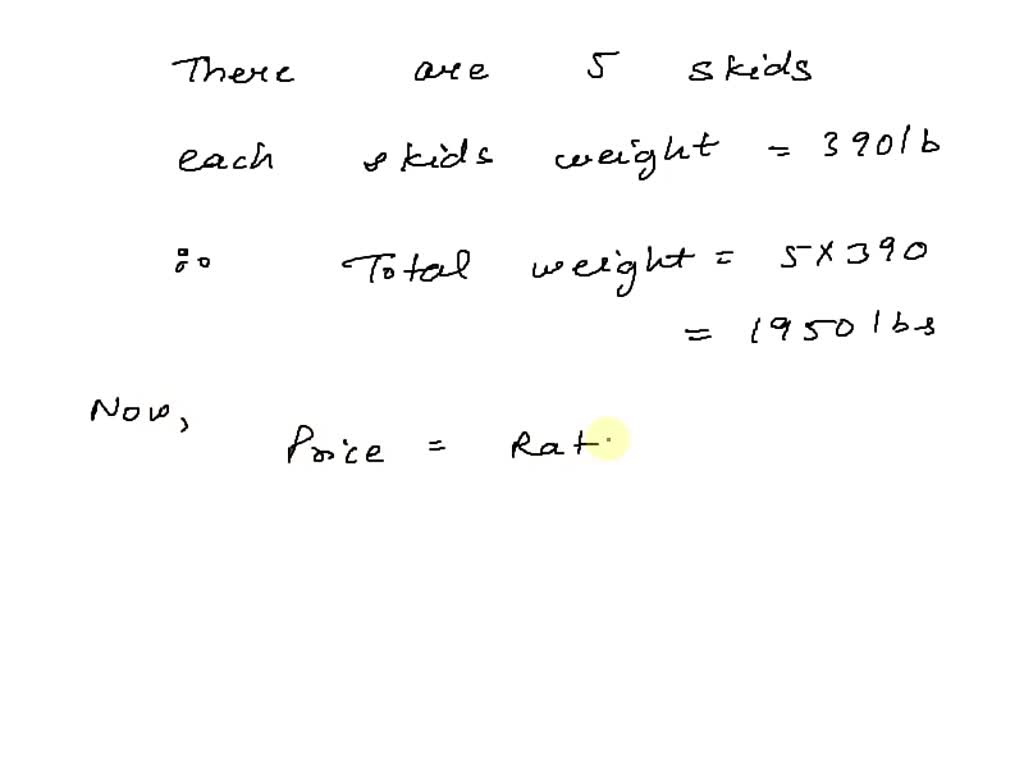 There are 5 skids
each skids weight = 390 lb
∴ Total weight = 5 × 390
= 1950 lbs
Now,
Price = Rat